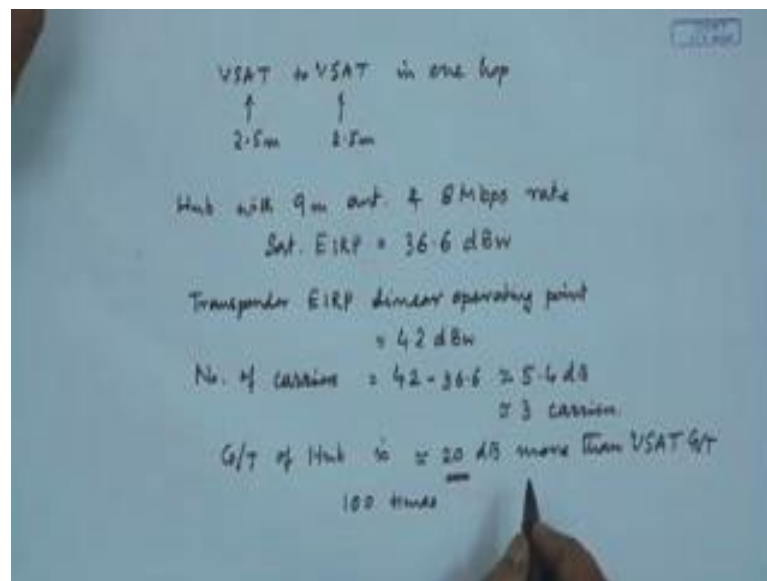 VSAT to VSAT in one hop
↑ ↑
2.5m 2.5m
Hub with 9m ant. & 8 Mbps rate
Sat. EIRP = 36.6 dBW
Transponder EIRP Linear operating point
= 42 dBW
No. of carriers = 42 - 36.6 ≈ 5.4 dB
≈ 3 carriers
G/T of Hub is ≈ 20 dB more than VSAT G/T
100 times